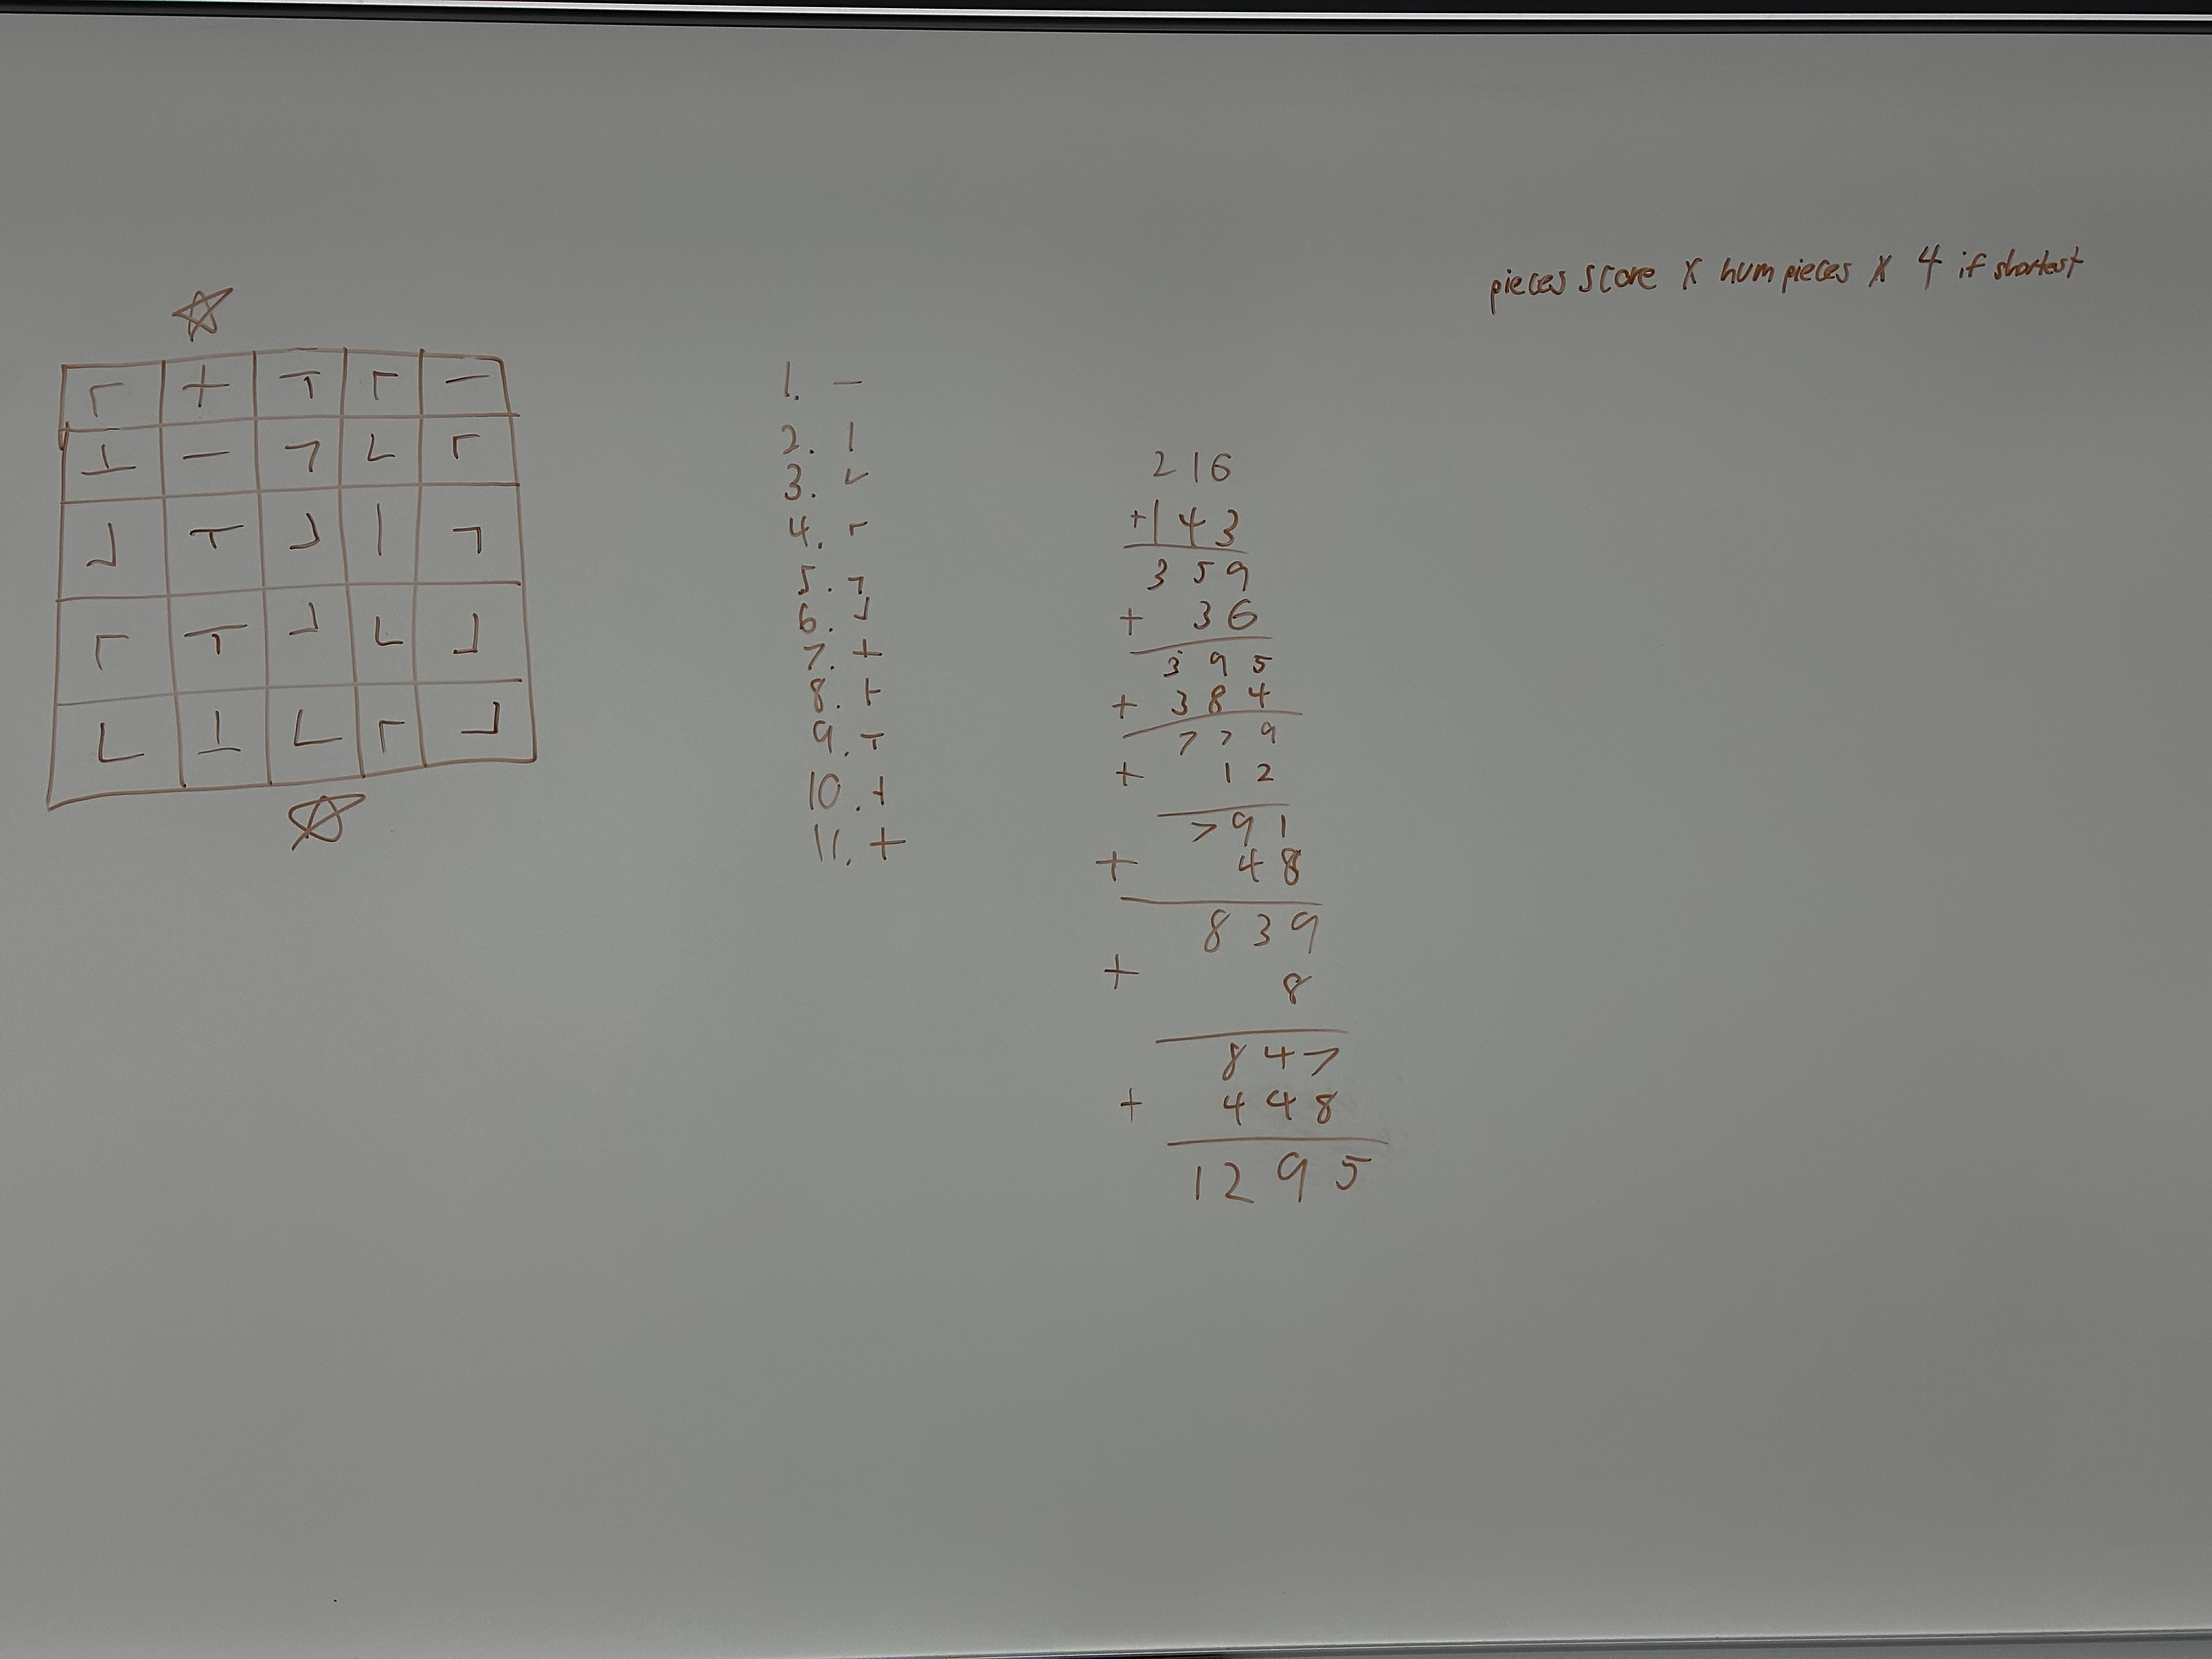 pieces score X num pieces X 4 if shortest
┌ + ┬ ┌ —
┴ — ┐ └ ┌
┘ ┬ ┘ | ┐
┌ ┬ ┘ └ ┘
└ ┴ └ ┌ ┘
1. —
2. |
3. └
4. ┌
5. ┐
6. ┘
7. +
8. ├
9. ┬
10. ┤
11. +
216
+143
359
+ 36
395
+ 384
779
+ 12
791
+ 48
839
+ 8
847
+ 448
1295